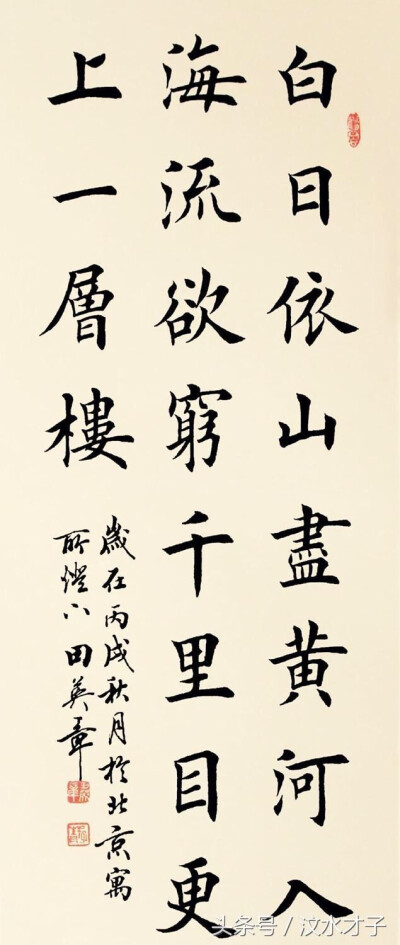 白日依山盡黄河入
海流欲窮千里目更
上一層樓
歲在丙戌秋月於北京寓
所燈下田英章
头条号／汶水才子